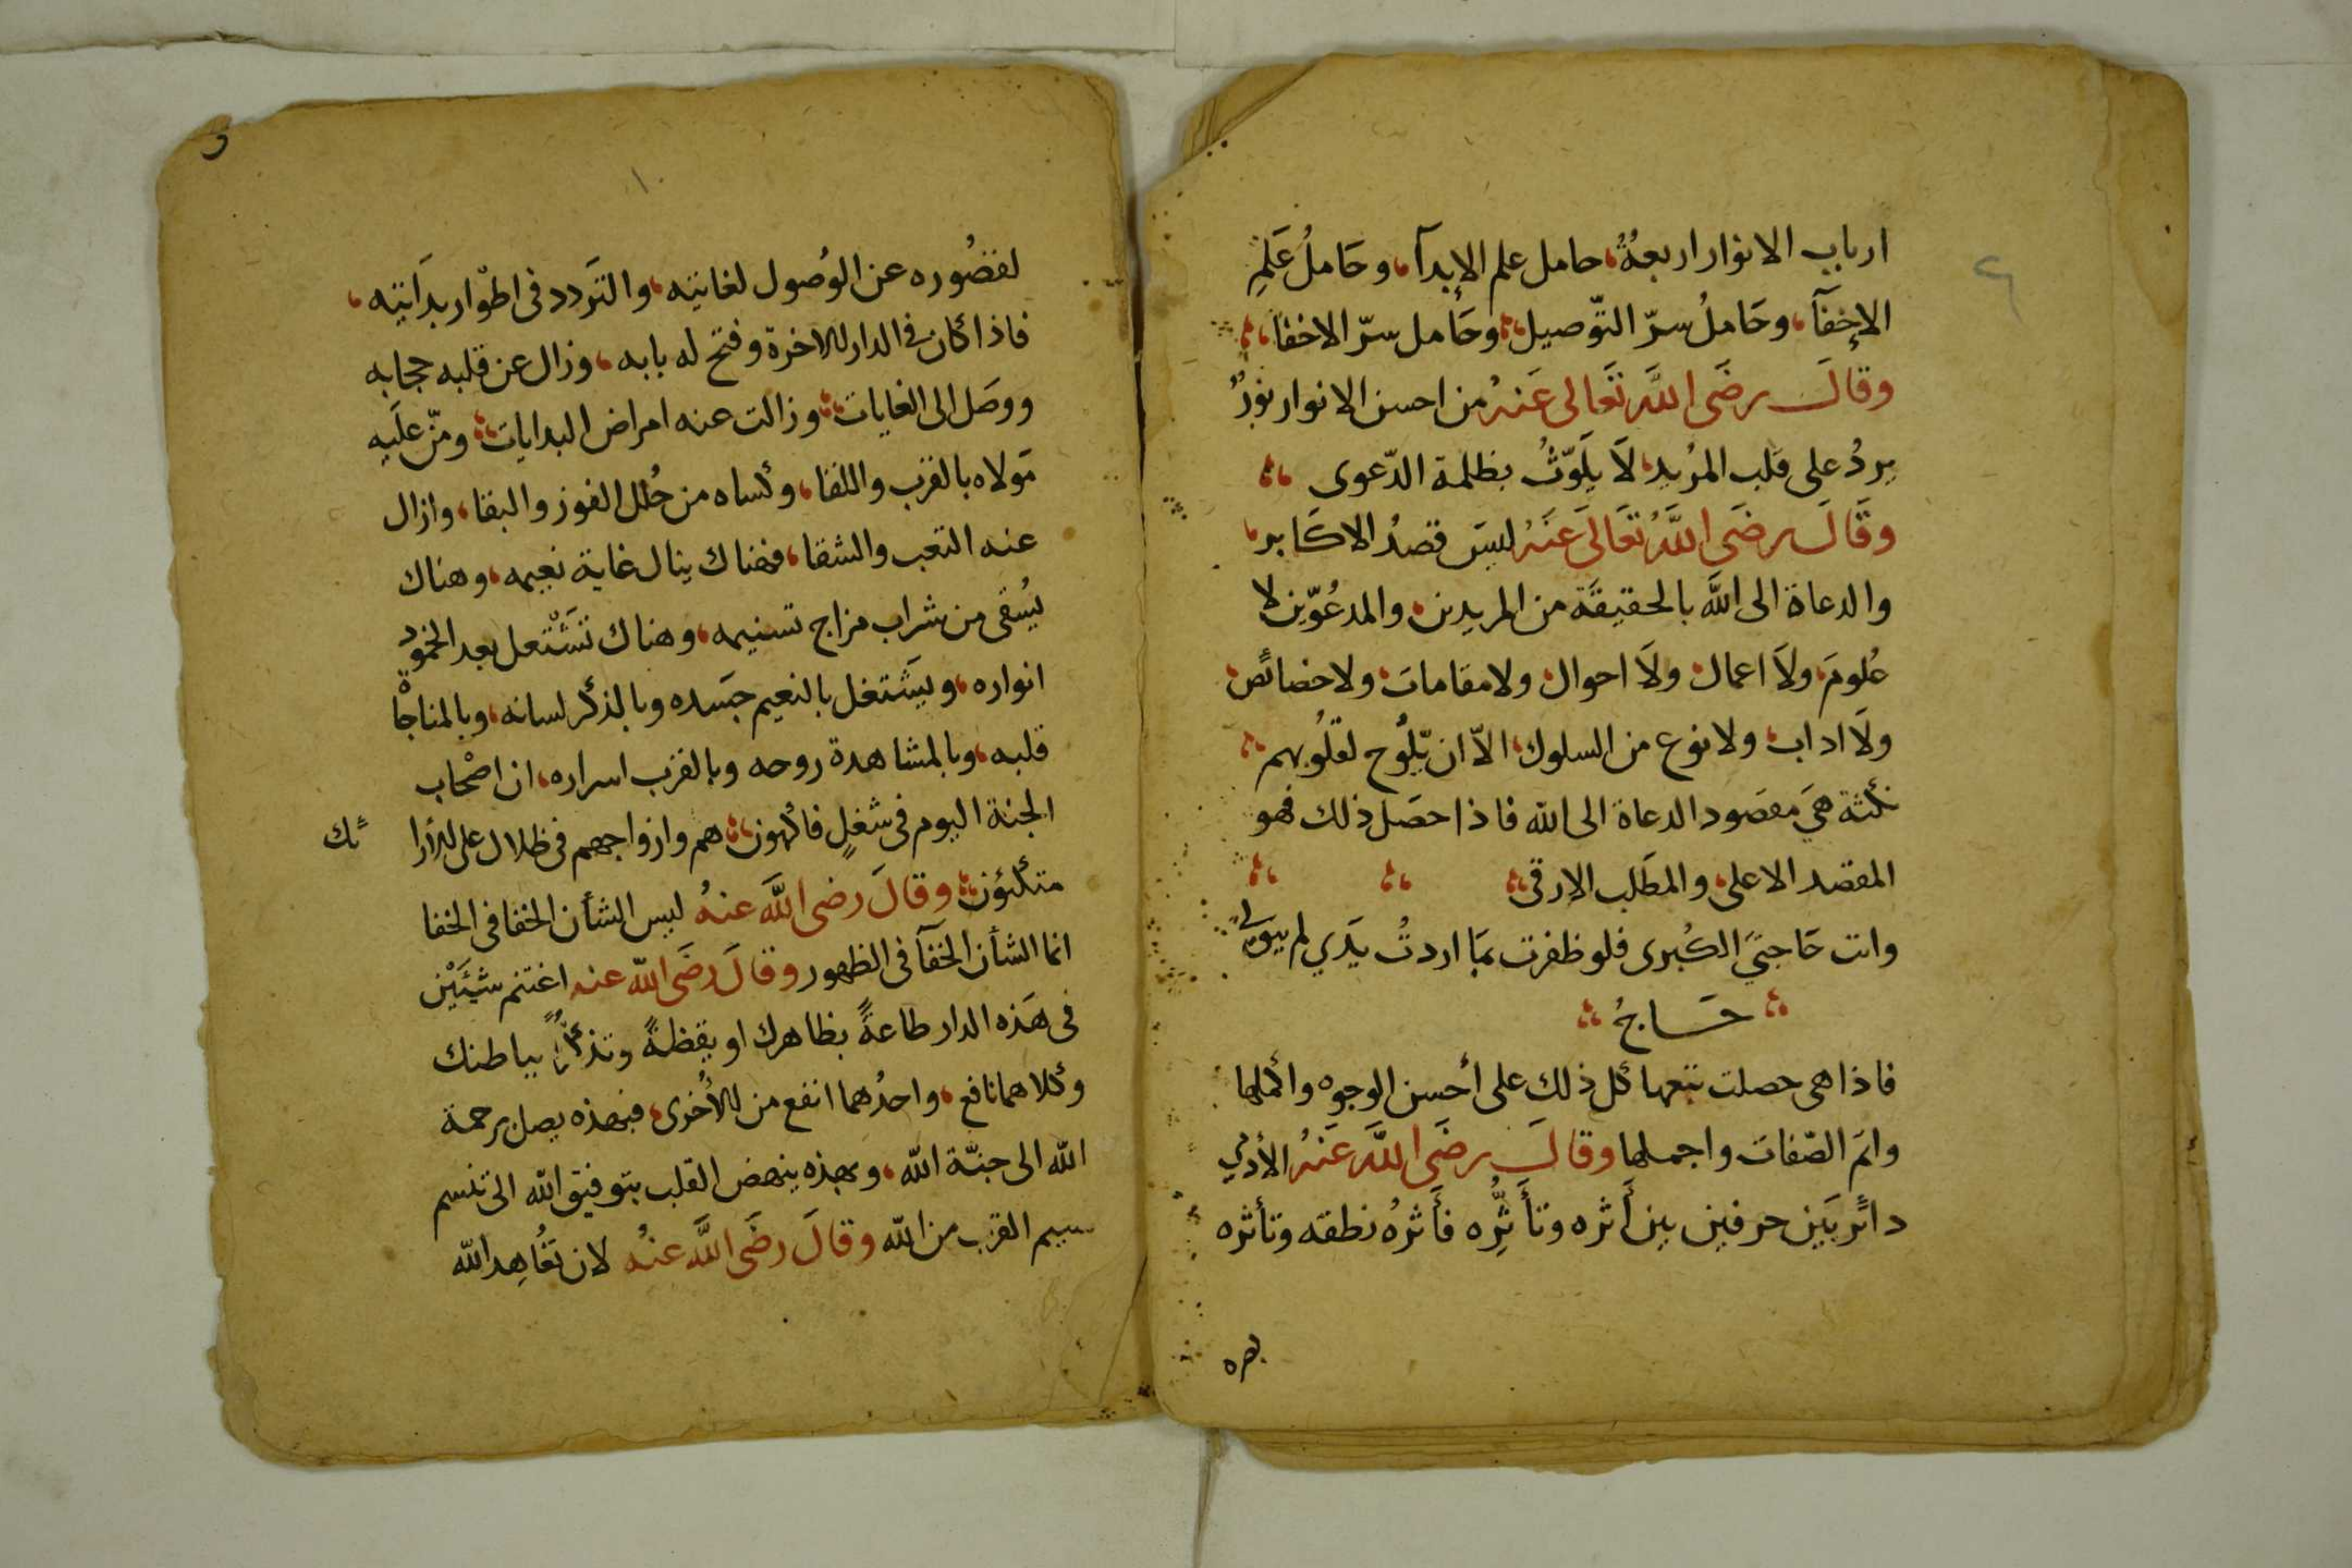 ارباب الانوار اربعةُ، حامل علم الابدآ، وحَاملُ عَلمِ
الإخفآ، وحَاملُ سرّ التّوصيل، وحَامل سرّ الاخفا،
وقالَ رضَى اللَّه تَعَالى عَنهُ من احسن الانوار نورٌ
يردُ على قلب المرُيد، لَا يَلَوّثُ بظلمة الدّعوى
وقَالَ رضَى اللَّهُ تعَالَى عَنَهُ ليسَ قصدُ الاكَابر،
والدعاة الى اللَّه بالحقيقَة من المريدين، والمدعُوّين لا
عُلومَ، ولَا اعمال، ولَا احوال، ولا مقامات، ولا خصائص،
ولَا اداب، ولا نوع من السلوك، الاّ ان يّلُوح لقلُوبهم
نكتة هيَ مقصود الدعاة الى الله فاذا حصَل ذلك فهو
المقصد الاعلى، والمطَلب الارقى
وانت حَاجتيَ الكُبرى فلو ظفرت بمَا اردتُ يَدي لم يبق لى
حَاجُ
فاذا هى حصلت تتبعها كل ذلك على أحسن الوجوه واكملها
واتمَ الصّفات واجملها وقالَ رضَى اللَّه عَنَهُ الأدمي
دائر بَين حرفين بين أَثره وتأَثُّرِه فأَثرهُ نطقه وتأثره
١٠
لقصُوره عن الوُصول لغايتِه، والتَردد فى اطْوار بدَايته،
فاذا كان فى الدار للاخرة وفتح له بابه، وزال عن قلبه حجابه
ووصَل الى الغايات، وزالت عنه امراض البدايات، ومنّ علَيه
مَولاه بالقرب واللقا، وكساه من حُلل الفوز والبقا، وازال
عنه التعب والشقا، فهناك ينال غاية نعيمه، وهناك
يُسقى من شراب مزاج تسنيمه، وهناك تَشْتعل بعد الخمود
انواره، ويَشتغل بالنعيم جسَده وبالذكر لسانه، وبالمناجاْة
قلبه، وبالمشاهدة روحه وبالقرب اسراره، ان اصْحاب
الجنة اليوم فى شغلٍ فاكهون، هم وازواجهم فى ظلال على الارا ئك
متكئون، وقالَ رضى اللَّه عنهُ ليس الشأن الخفا فى الخفا
انما الشأن الخفَآ فى الظهور وقالَ رضَى اللّه عنه اغتنم شيَئَيْن
فى هَذه الدار طاعةً بظاهرك او يقظةً وتذكُّراً بباطنك
وكلاهما نافع، واحدُهما انفع من للأُخرى، فبهذه يصل برحمة
اللّه الى جنّة اللّه، وبهذه ينهض القلب بتوفيق اللّه الى تنسم
نسيم القرب من اللّه وقالَ رضَى اللَّه عنهُ لان تعُاهِد اللّه